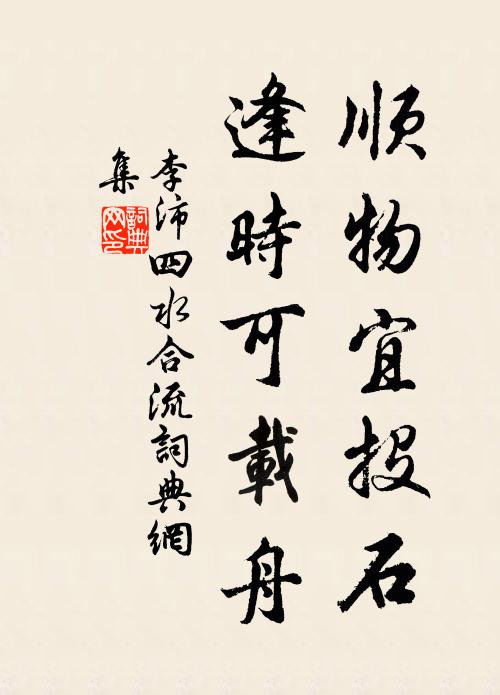 順物宜投石
逢時可載舟
李沛四水合流詞典網
集
詞典
网印